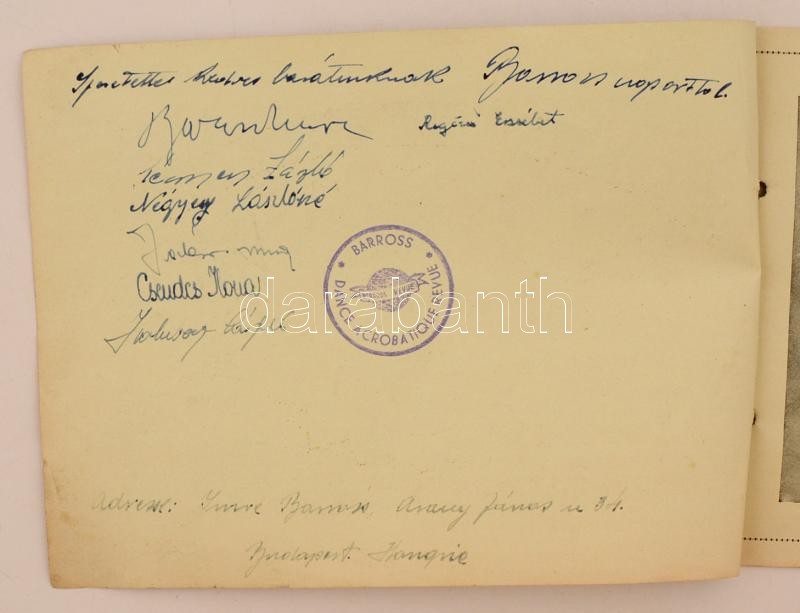 Szeretettel kedves barátainknak Barross csoporttól.
Barross Imre Regősi Erzsébet
László
Négyesy Lászlóné
Csendes Ilona
László
BARROSS
DANCE ACROBATIQUE REVUE
BARROSS REVUE
darabanth
Adresse: Imre Barross, Arany János u 34.
Budapest. Hongrie